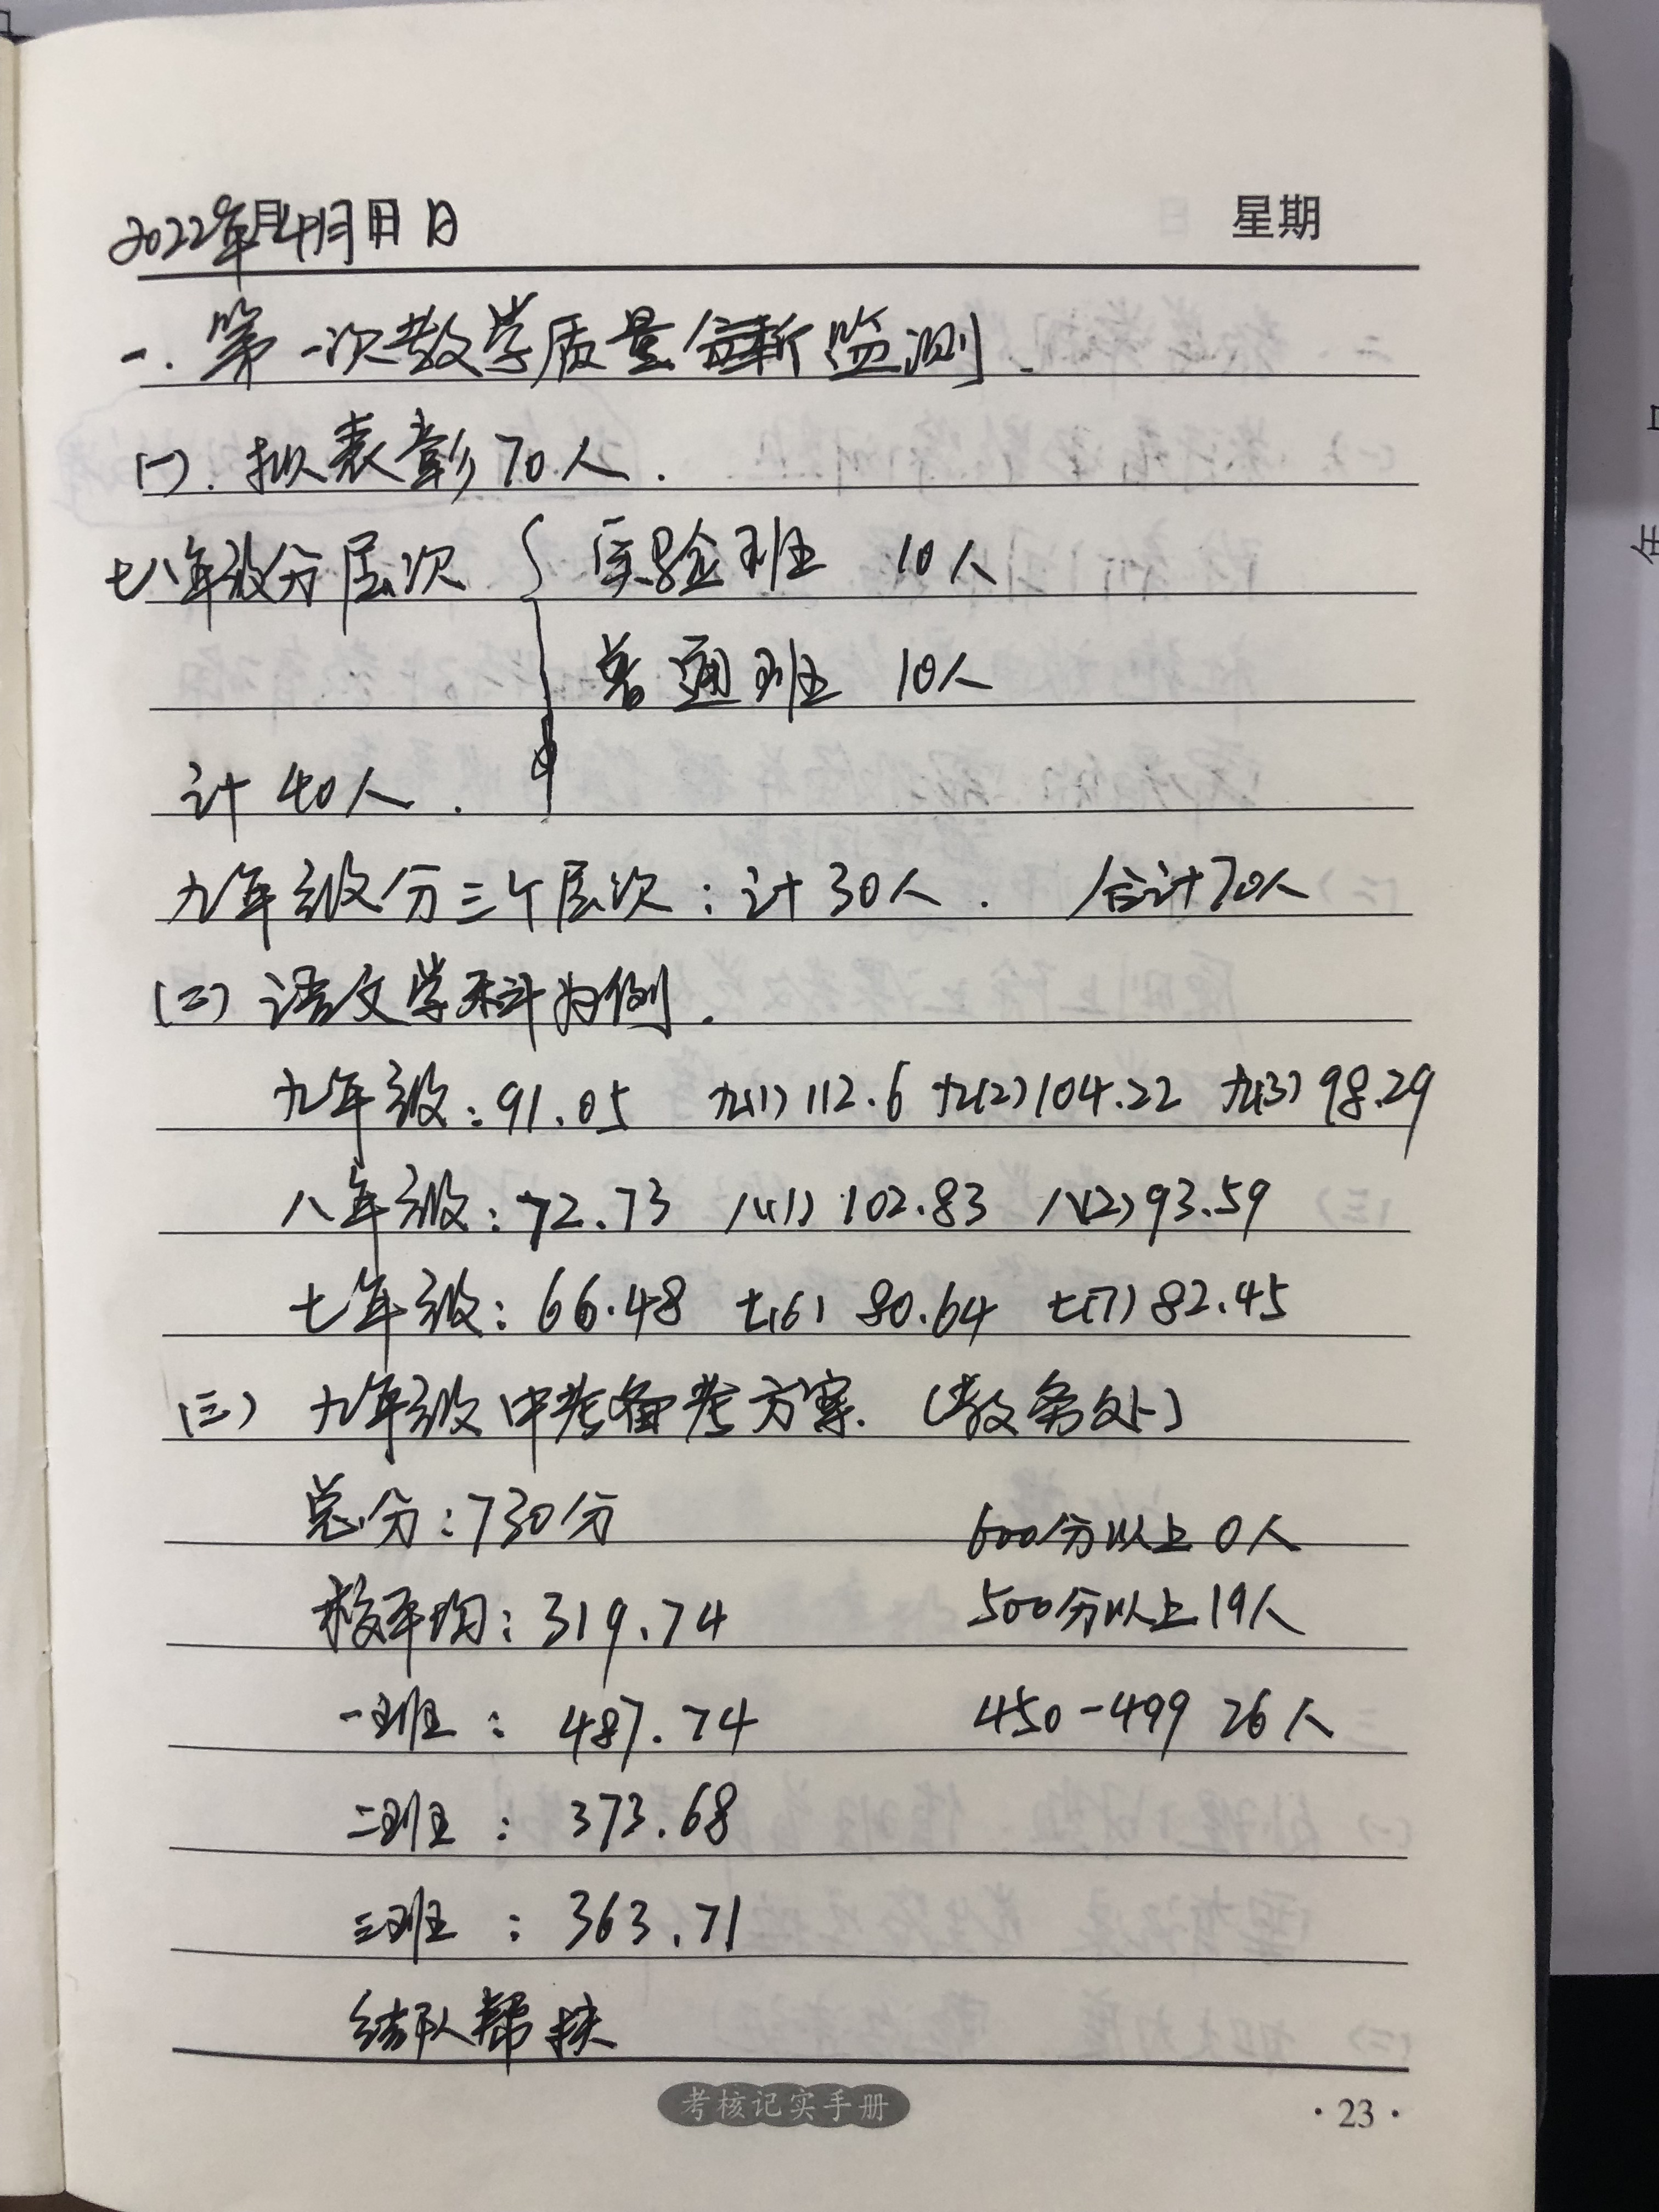 2022年4月 日 星期
一.第一次教学质量诊断监测.
(一).拟表彰70人.
七八年级分层次 { 实验班 10人
普通班 10人
计40人.
九年级分三个层次:计30人. 合计70人
(二)语文学科为例.
九年级:91.05 九(1)112.6 九(2)104.22 九(3)98.29
八年级:72.73 八(1)102.83 八(2)93.59
七年级:66.48 七(6)80.64 七(7)82.45
(三)九年级中考备考方案.(教务处)
总分:730分 600分以上0人
校平均:319.74 500分以上19人
一班:487.74 450-499 26人
二班:373.68
三班:363.71
结队帮扶
考核记实手册
·23·